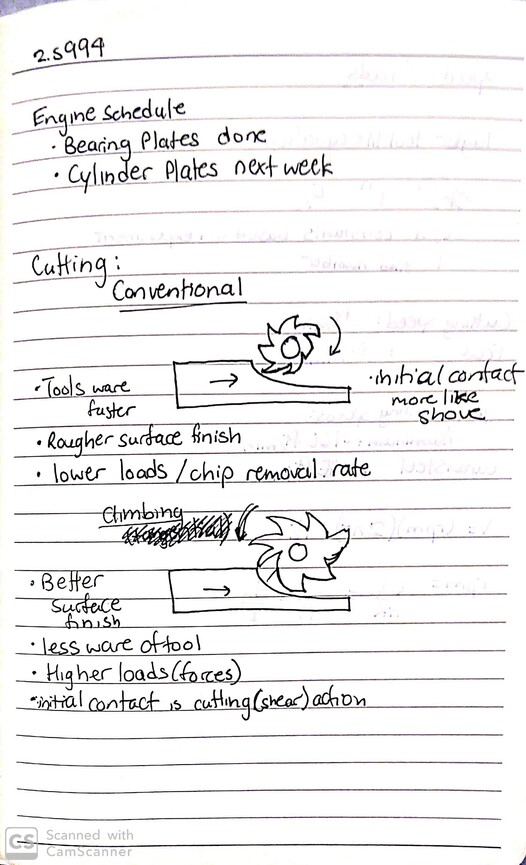 2.s994
Engine Schedule
• Bearing Plates done
• Cylinder Plates next week
Cutting:
Conventional
• Tools ware
faster
• initial contact
more like
shove
• Rougher surface finish
• lower loads / chip removal rate
Climbing
• Better
surface
finish
• less ware of tool
• Higher loads (forces)
• initial contact is cutting (shear) action
CS Scanned with
CamScanner